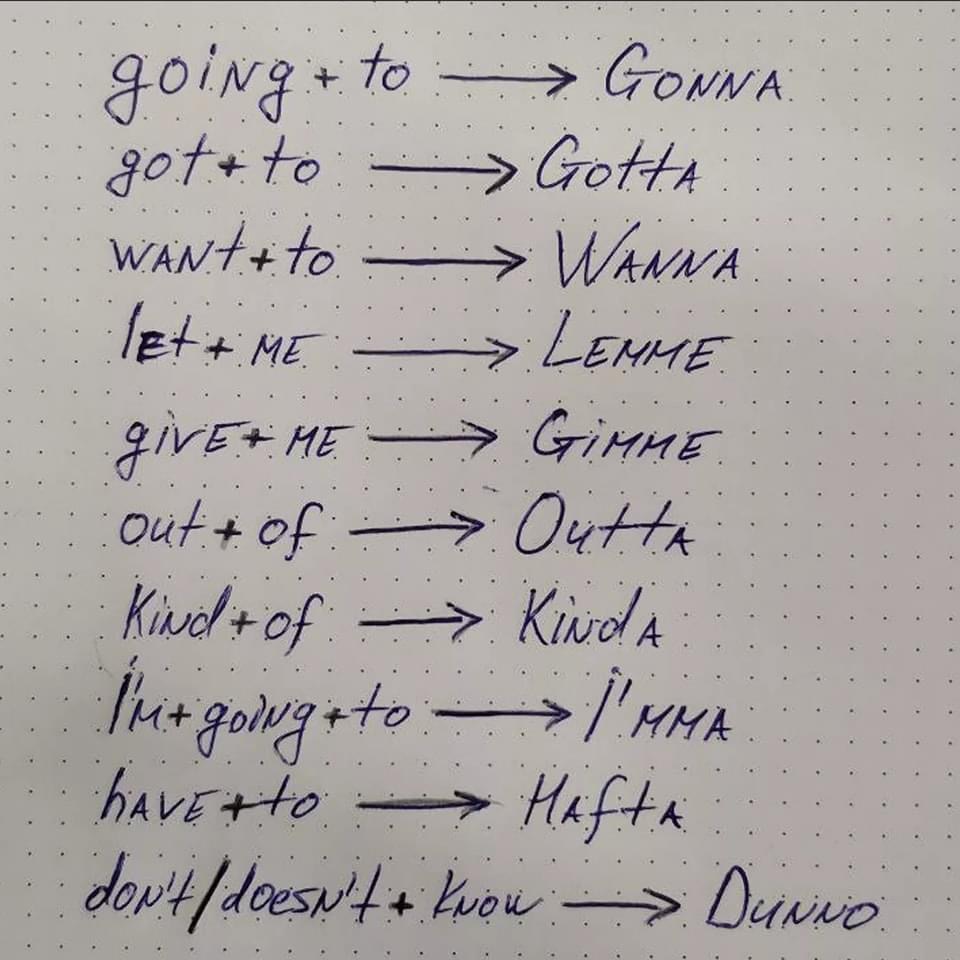 going + to → GONNA
got + to → GottA
WANt + to → WANNA
lEt + ME → LEMME
giVE + ME → GiMME
out + of → OuttA
Kind + of → KindA
I'm + going + to → I'MMA
hAVE + to → HAftA
don't/doesn't + know → DuNNO